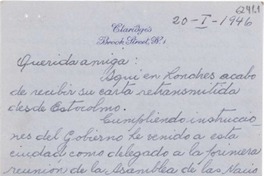 6241.1
Claridge's
Brook Street, W.1
20-I-1946
Querida amiga:
Aqui en Londres acabo
de recibir su carta retransmitida
desde Estocolmo.
Cumpliendo instruccio
nes del Gobierno he venido a esta
ciudad como delegado a la primera
reunion de la Asamblea de las Nacio